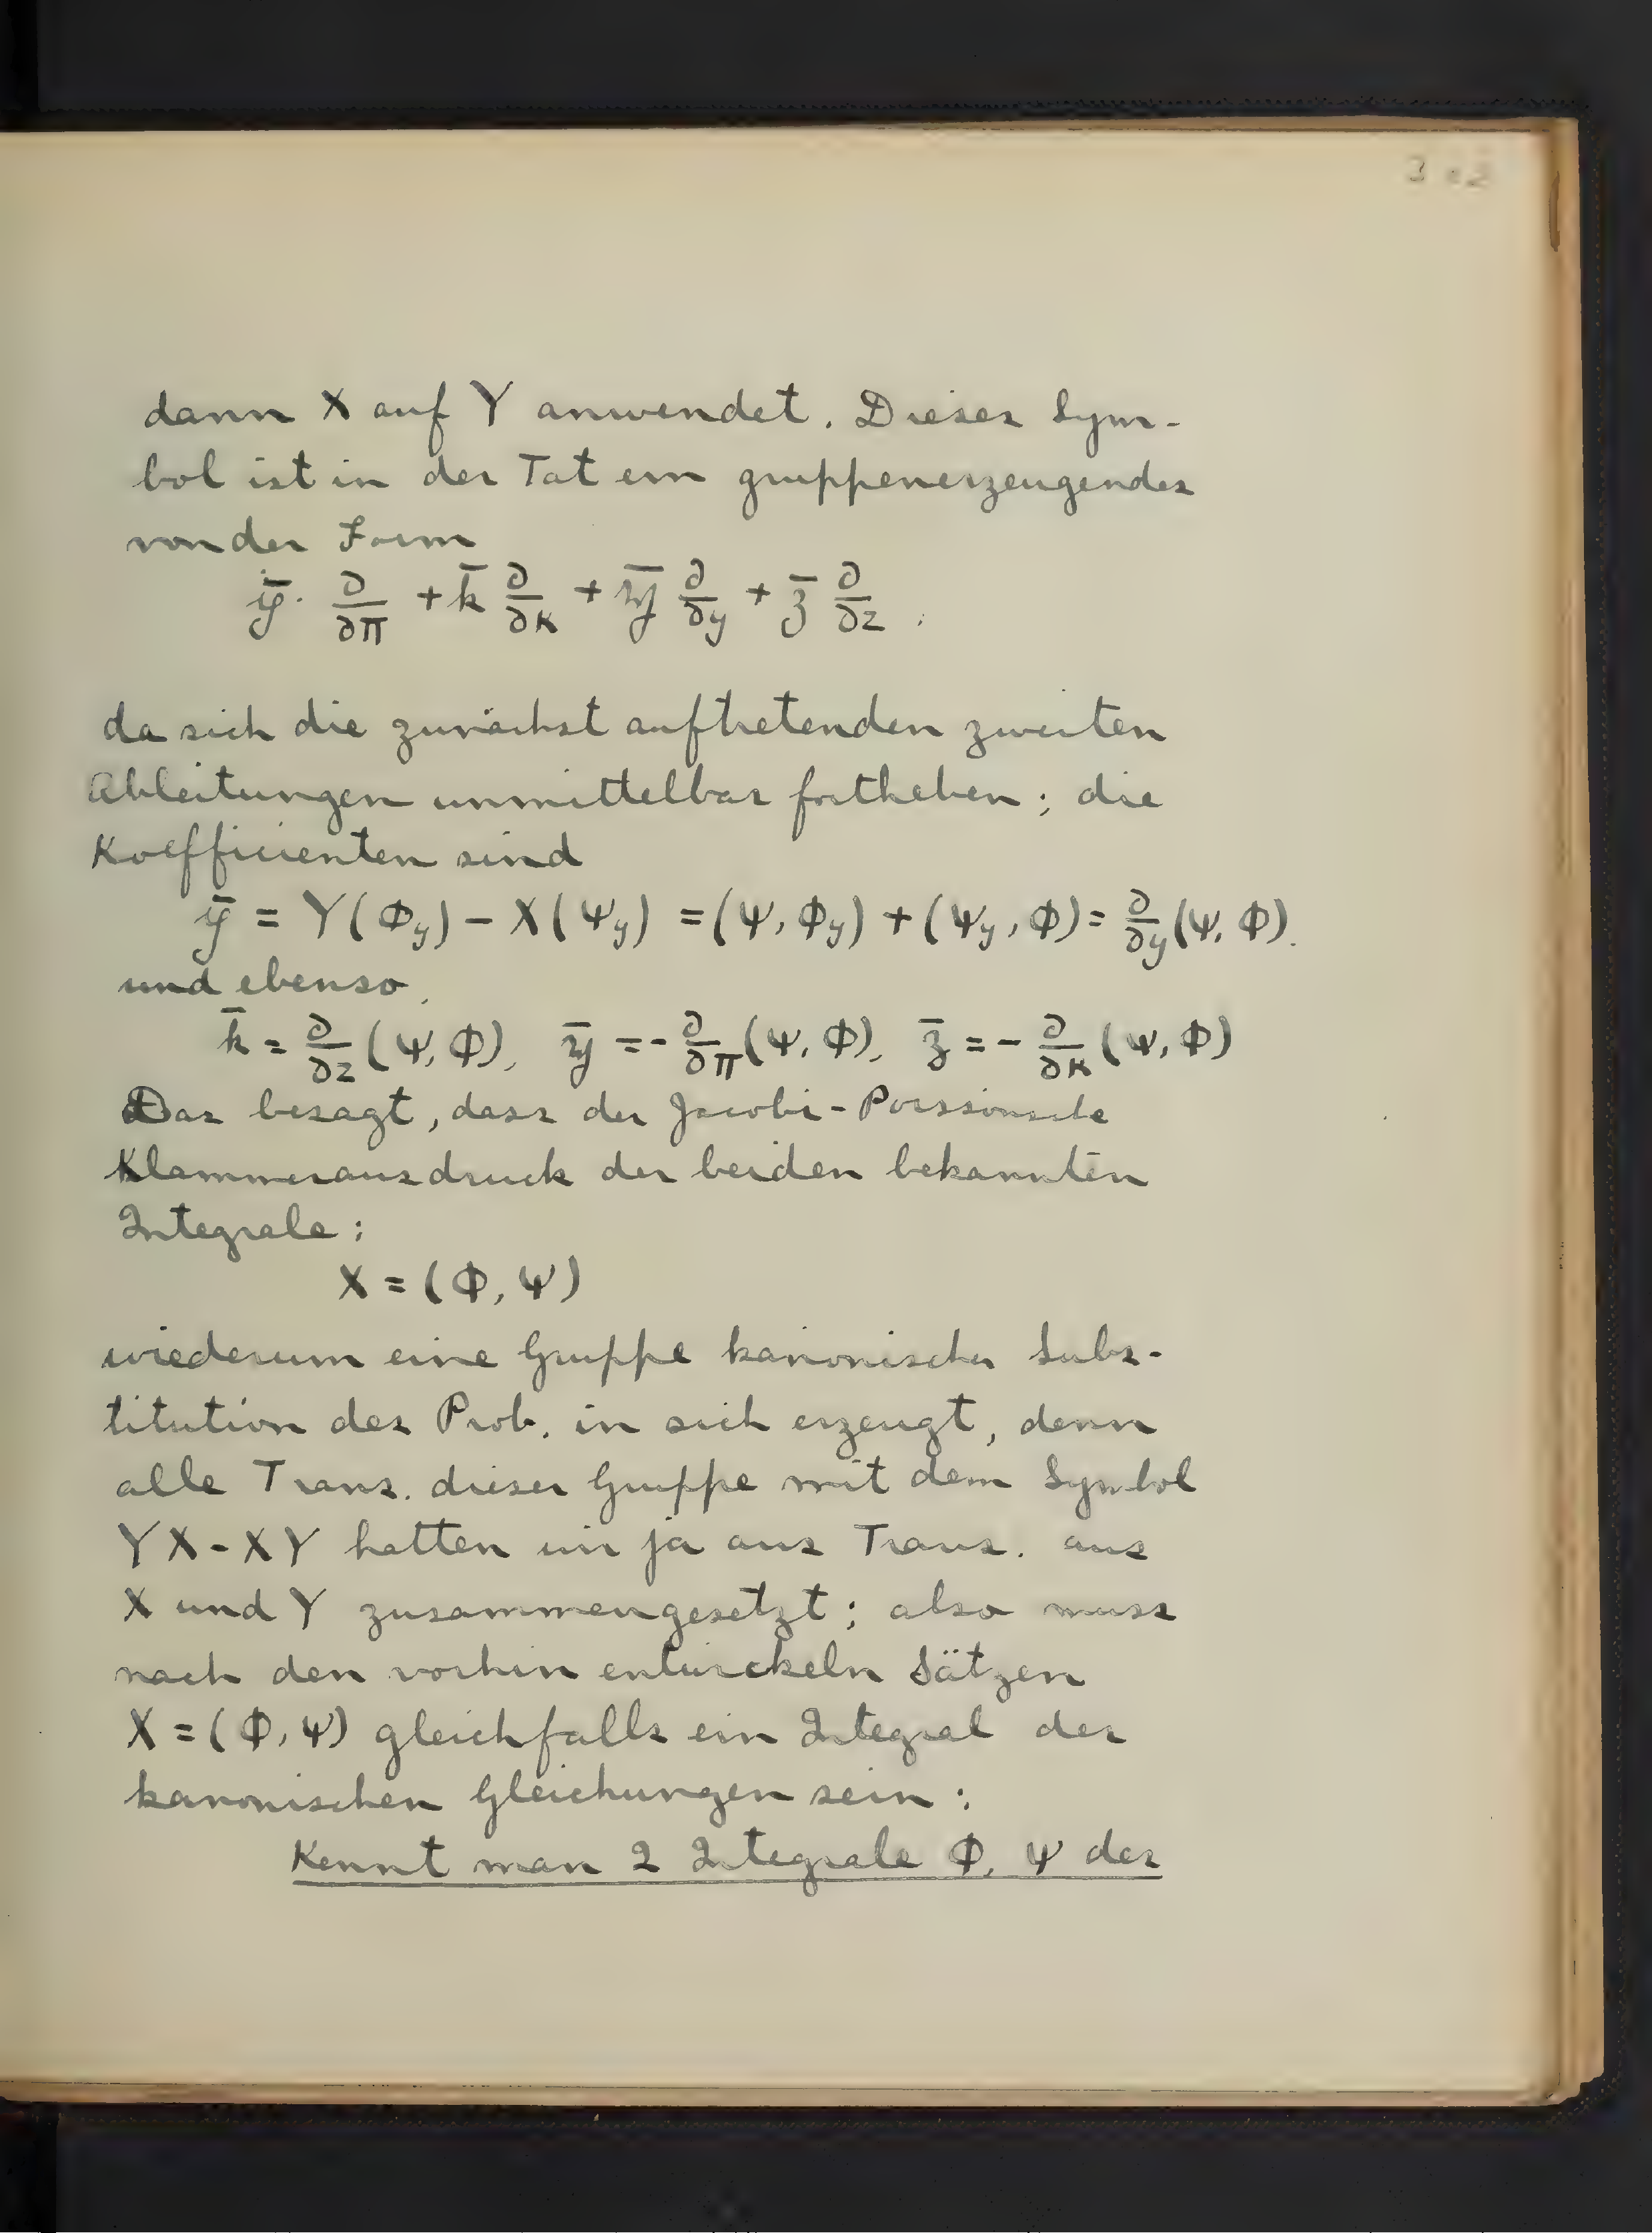 dann X auf Y anwendet. Dieses Sym-
bol ist in der Tat ein gruppenerzeugendes
von der Form
ȳ · ∂/∂π + k̄ ∂/∂κ + η̄ ∂/∂y + z̄ ∂/∂z
da sich die zunächst auftretenden zweiten
Ableitungen unmittelbar fortheben; die
Koefficienten sind
ȳ = Y(Φy) - X(Ψy) = (Ψ, Φy) + (Ψy, Φ) = ∂/∂y (Ψ, Φ).
und ebenso,
k̄ = ∂/∂z (Ψ, Φ), η̄ = - ∂/∂π (Ψ, Φ), z̄ = - ∂/∂κ (Ψ, Φ)
Das besagt, dass der Jacobi-Poissonsche
Klammerausdruck der beiden bekannten
Integrale:
X = (Φ, Ψ)
wiederum eine Gruppe kanonischer Subs-
titution des Prob. in sich erzeugt, denn
alle Trans. dieser Gruppe mit dem Symbol
YX - XY hatten wir ja aus Trans. aus
X und Y zusammengesetzt; also muss
nach den vorhin entwickeln Sätzen
X = (Φ, Ψ) gleichfalls ein Integral der
kanonischen Gleichungen sein:
Kennt man 2 Integrale Φ, Ψ des